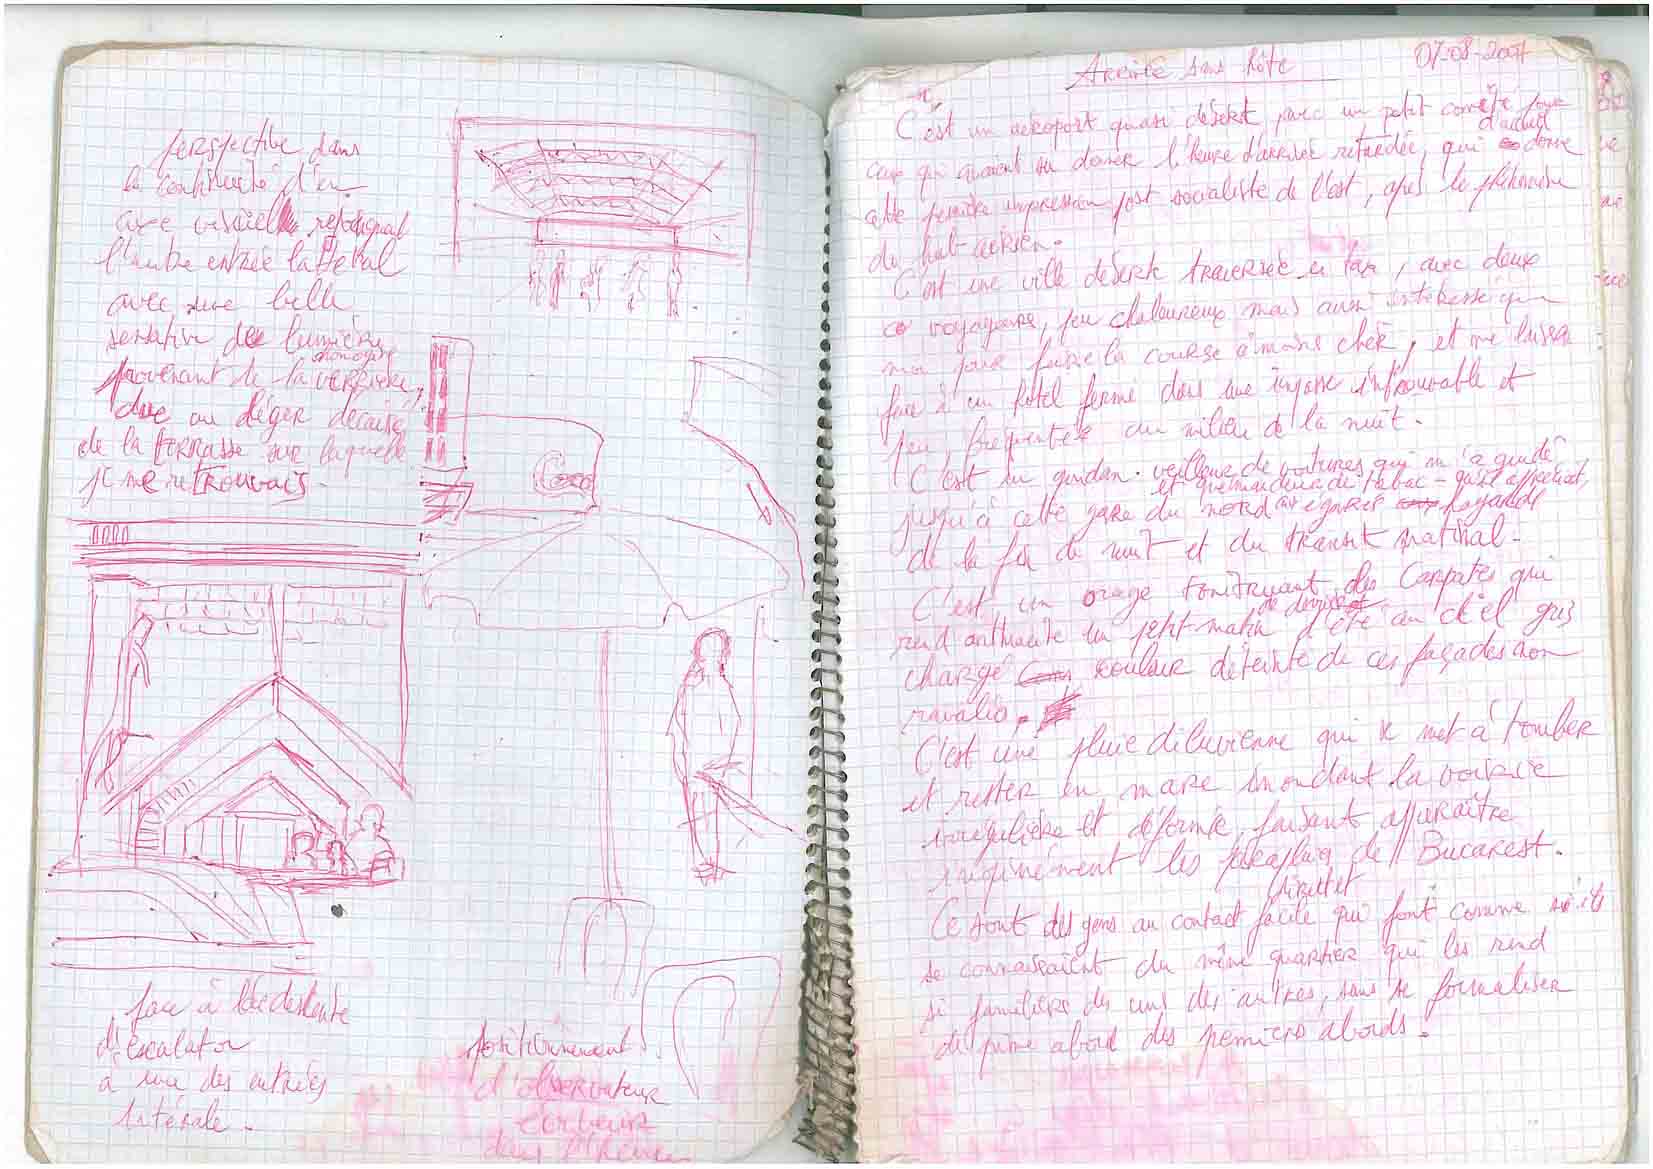 perspective dans
la continuité d'un
axe visuel rejoignant
l'autre entrée latteral
avec une belle
sensation de lumière
provenant de la verrière,
due au léger décaisé
de la terrasse sur laquelle
je me retrouvais.
Coca
face à la descente
d'escalator
à une des entrées
latérale.
positionnement
d'observateur
dans
Arrivée sans hôte
07-08-2007
C'est un aéroport quasi désert avec un petit comité
d'accueil
pour
ceux qui avaient su donner l'heure d'arrivée retardée, qui donne
cette première impression post socialiste de l'est, après le phénomène
du hub aérien.
C'est une ville déserte traversée en taxi, avec deux
voyageurs, peu chaleureux mais aussi intéressé que
moi pour faire la course à moins cher, et me laisser
face à un hôtel fermé dans une impasse introuvable et
peu fréquentée au milieu de la nuit.
C'est un gardan-veilleur de voitures qui m'a guidé
et quémandeur de tabac
jusqu'à cette gare du nord aux égarés
de la fin de nuit et du transit matinal.
C'est un orage tonitruant des Carpates qui
rend anthracite un petit-matin d'été au ciel gris
chargé couleur déteinte de ces façades non
ravalés.
C'est une pluie diluvienne qui se met à tomber
et rester en mare inondant la voirie
irrégulière et déformée, faisant apparaître
les parapluies de Bucarest.
Ce sont des gens au contact facile qui font comme si ils
se connaissaient du même quartier qui les rend
si familiers des uns des autres, sans se formaliser
de prime abord des premiers abords.